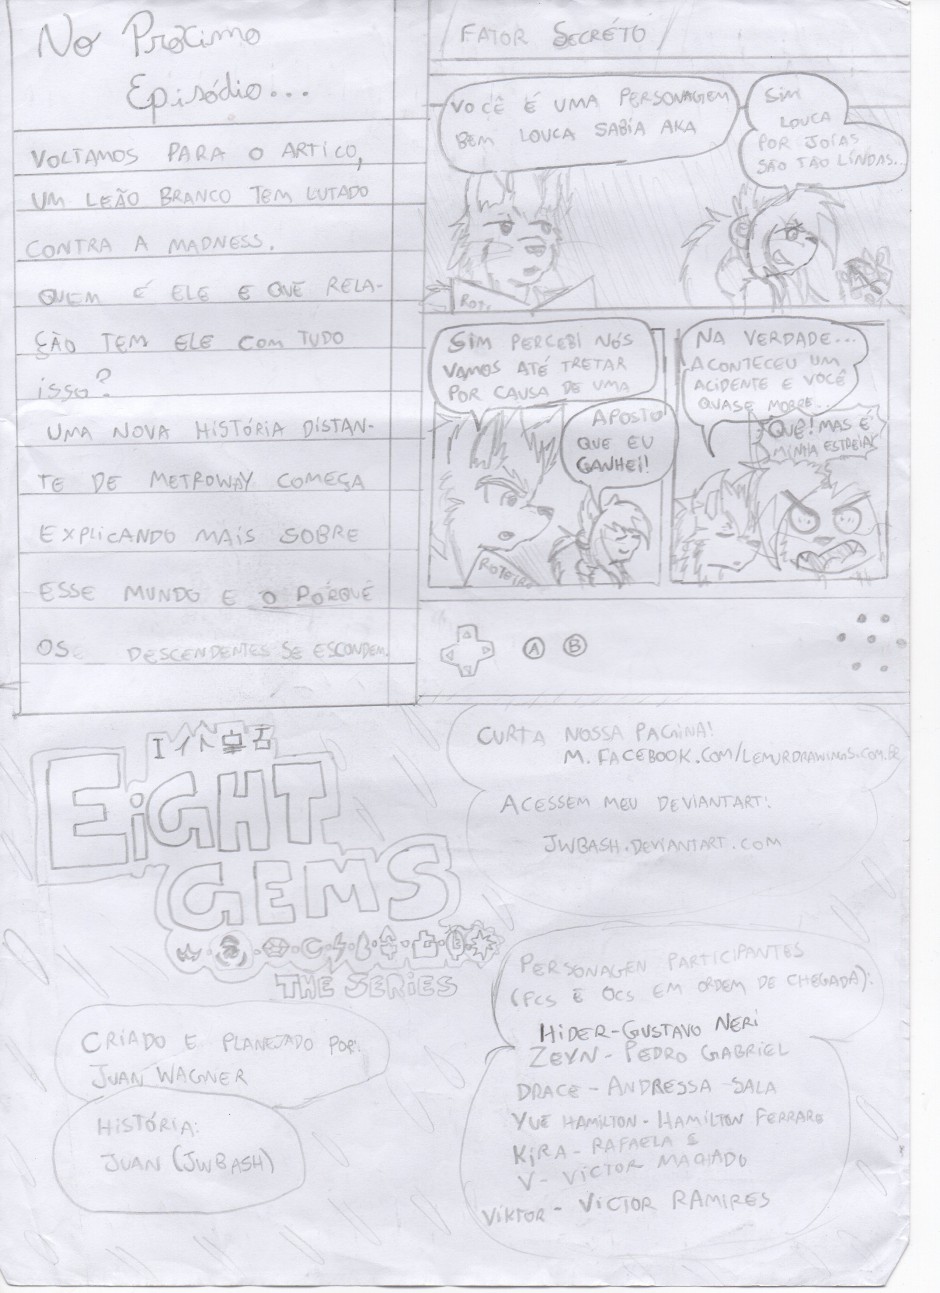 No Proximo
Episódio...
VOLTAMOS PARA O ARTICO,
UM LEÃO BRANCO TEM LUTADO
CONTRA A MADNESS.
QUEM É ELE E QUE RELA-
ÇÃO TEM ELE COM TUDO
ISSO?
UMA NOVA HISTÓRIA DISTAN-
TE DE METROWAY COMEÇA
EXPLICANDO MAIS SOBRE
ESSE MUNDO E O PORQUÊ
OS DESCENDENTES SE ESCONDEM.
FATOR SECRÉTO
VOCÊ É UMA PERSONAGEM
BEM LOUCA SABIA AKA
SIM
LOUCA
POR JOIAS
SÃO TÃO LINDAS...
ROTE
SIM PERCEBI NÓS
VAMOS ATÉ TRETAR
POR CAUSA DE UMA
APOSTO
QUE EU
GANHEI!
ROTEIRO
NA VERDADE...
ACONTECEU UM
ACIDENTE E VOCÊ
QUASE MORRE...
QUÊ! MAS É
MINHA ESTREIA!
A B
EIGHT
GEMS
THE SERIES
CURTA NOSSA PAGINA!
M.FACEBOOK.COM/LEMURDRAWINGS.COM.BR
ACESSEM MEU DEVIANTART:
JWBASH.DEVIANTART.COM
CRIADO E PLANEJADO POR:
JUAN WAGNER
HISTÓRIA:
JUAN (JWBASH)
PERSONAGEN PARTICIPANTES
(FCS E OCS EM ORDEM DE CHEGADA):
HIDER-GUSTAVO NERI
ZEYN-PEDRO GABRIEL
DRACE-ANDRESSA SALA
YUE HAMILTON-HAMILTON FERRARO
KIRA-RAFAELA E
V-VICTOR MACHADO
VIKTOR-VICTOR RAMIRES